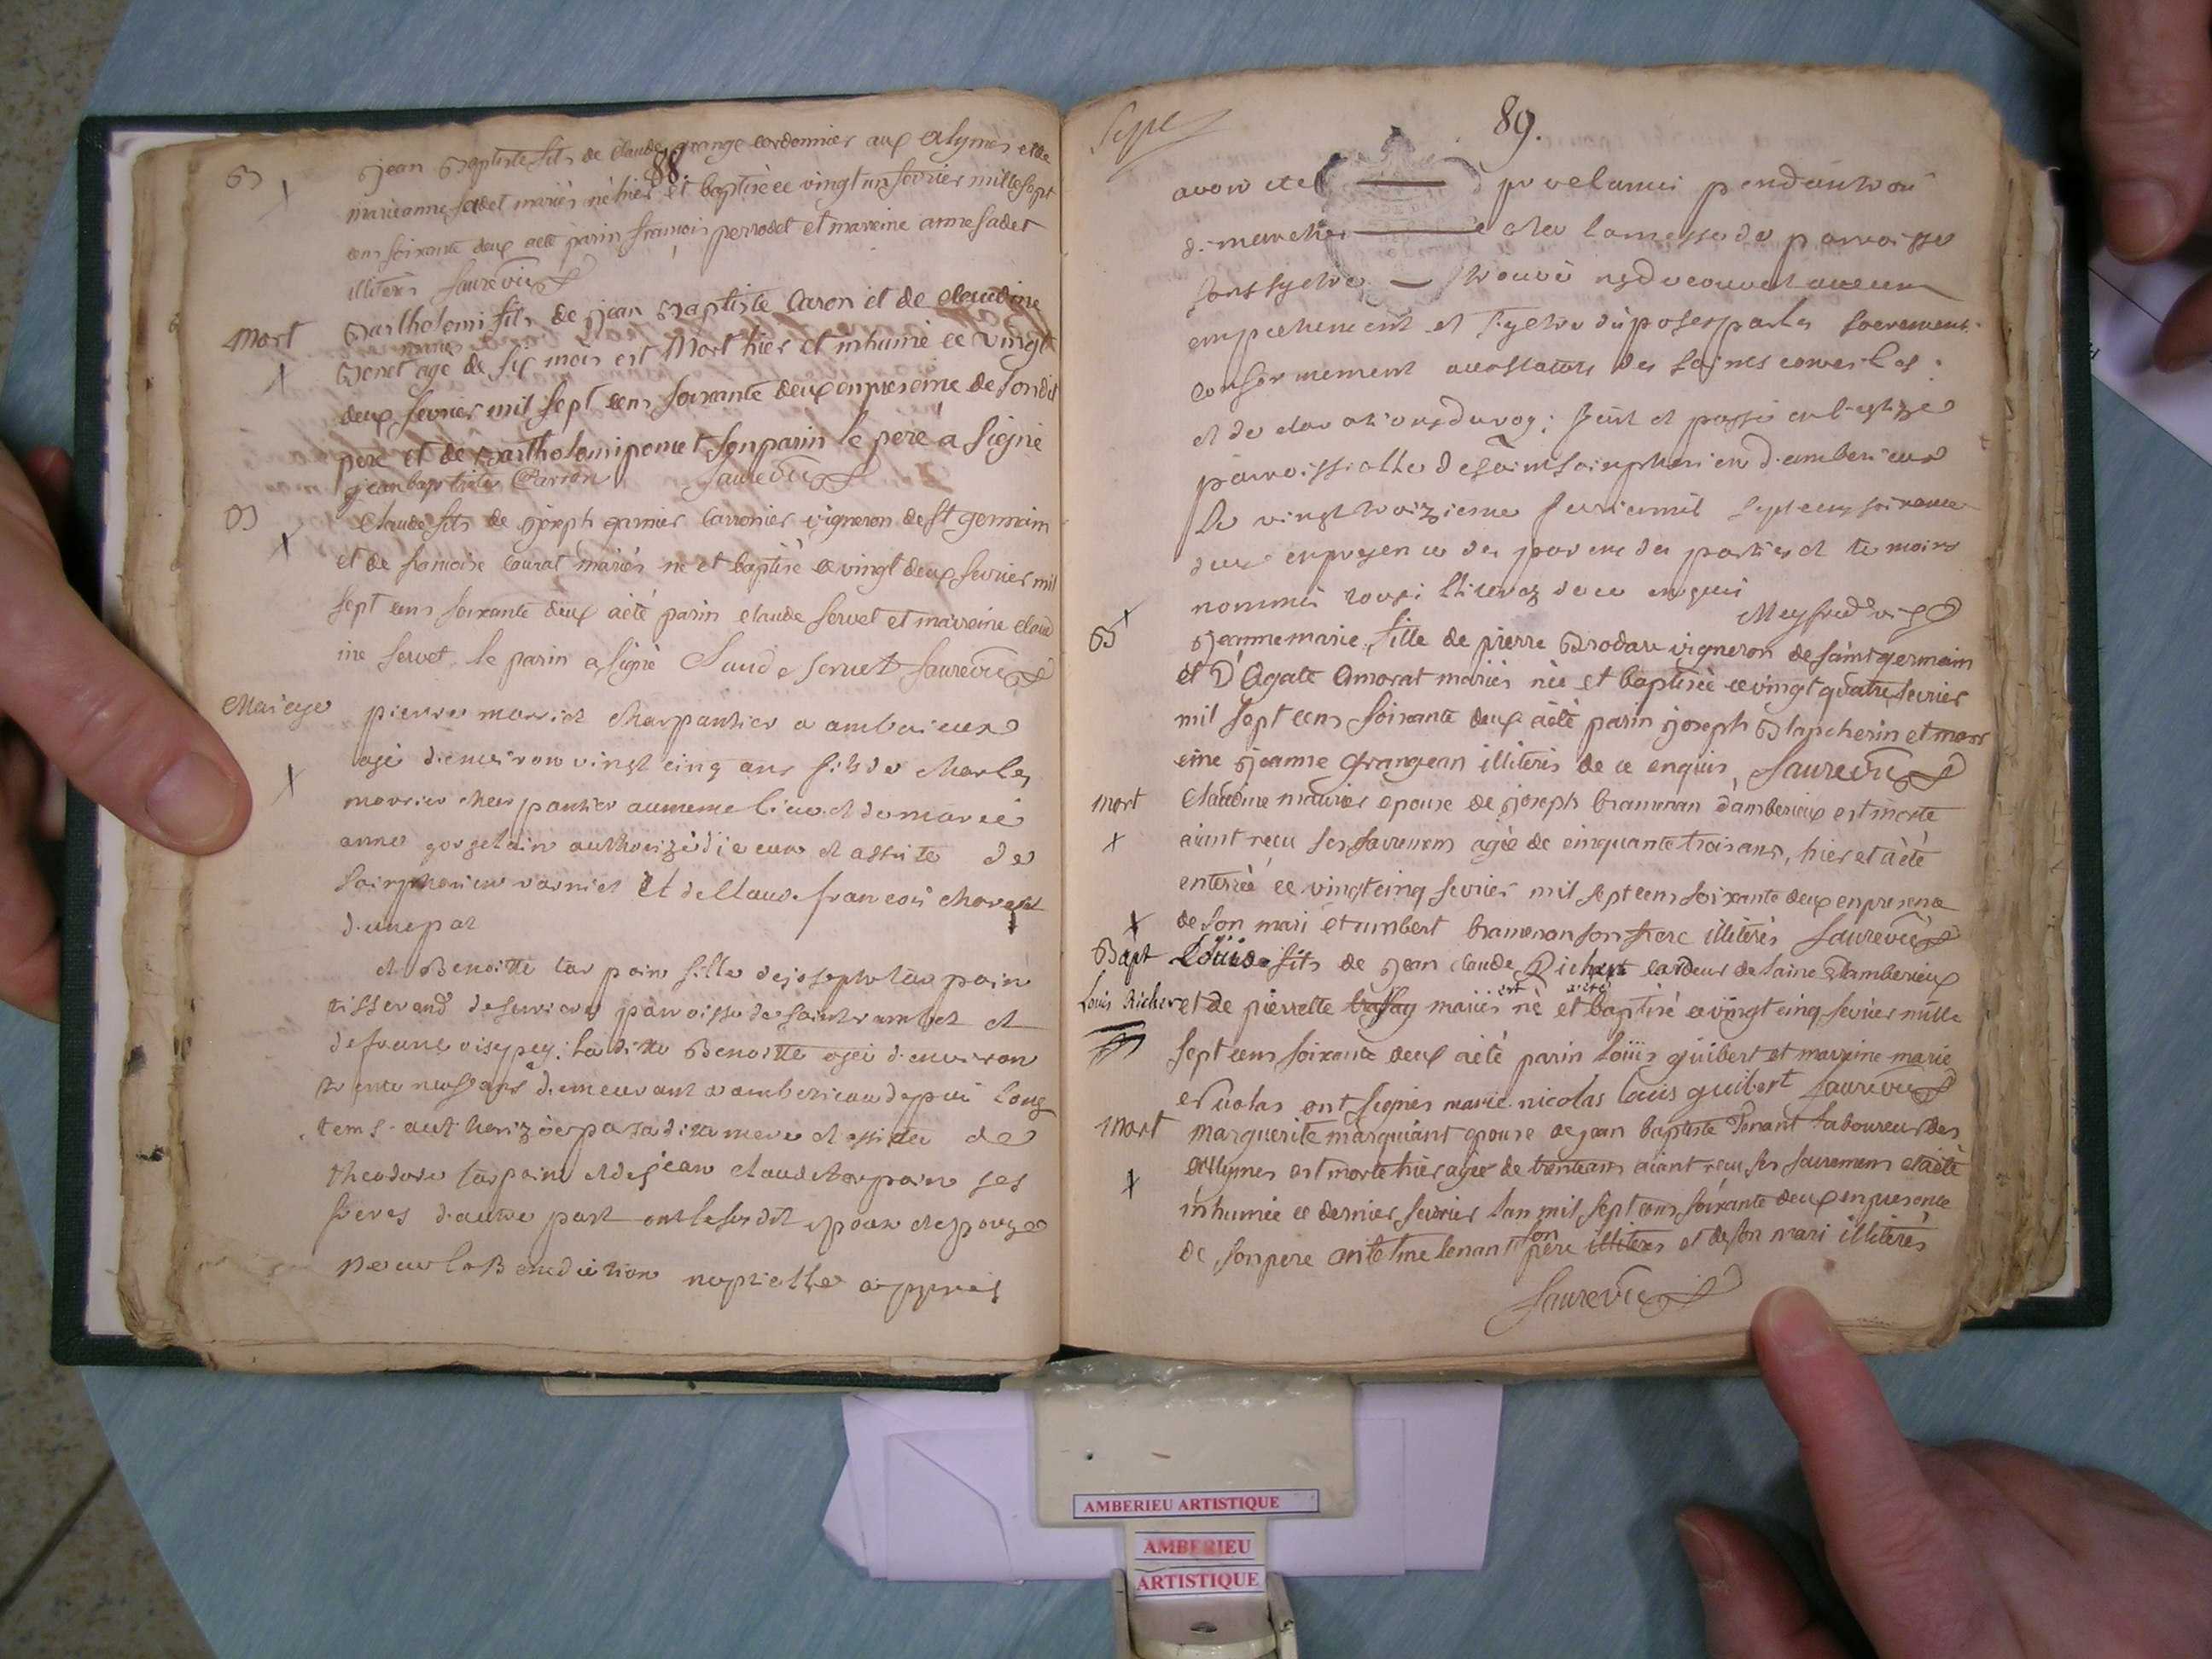 88.
B
Jean Baptiste fils de Claude grange cordonnier aux alymes et de
marieanne sadet mariés né hier et baptisé ce vingt un fevrier mille sept
cens soixante deux a eté parin francois perrodet et mareine anne sadet
illiterés Saurevic
Mort
Bartholomi fils de Jean Baptiste Caron et de Claudine
mariés
Benet agé de six mois est Mort hier et inhumé ce vingt
deux fevrier mil sept cens soixante deux en presence de son dit
pere et de Bartholomi ponet son parin le pere a signé
Jean baptiste Carron Saurevic
B
Claude fils de Joseph garnier Carronier vigneron de st germain
et de francoise Courat mariés né et baptisé ce vingt deux fevrier mil
sept cens soixante deux a eté parin claude servet et marreine claud
ine servet le parin a signé Claude servet Saurevic
Mariage
pierre morrier charpantier a amberieux
agé d'environ vingt cinq ans fils de charles
morrier charpantier au meme lieu et de marie
anne authorizé d'iceux et assisté de
et de Claude francois
d'une par
et Benoitte tarpoin fille de joseph tarpoin
tisserand de paroisse de saint rambert et
de francoise pey: laditte Benoitte agée d'environ
trente neuf ans demeurant a amberieux depuis long
tems authorizée par sa ditte mere et assistée de
theodore tarpoin et de jean claude tarpoin ses
freres d'autre part ont lesusdit epoux et epouze
receu la Benediction nuptialle appres
89.
avoir eté proclamés pendant trois
dimanches a la messe de paroisse
sans s'y etre trouvé ny decouvert aucun
empechement et s'y etre disposés par les sacremens
conformement aux statuts des saints conciles
et declarations du roy; fait et passé en l'eglize
paroissialle de saint d'amberieux
Le vingt troizieme fevrier mil sept cens soixante
deux en presence des parens des parties et temoins
nommés tous illiterez de ce enquis
Meyfred vic
B
Jeanne marie fille de pierre Brodare vigneron de saint germain
et D'Agate Amorat mariés née et baptisée ce vingt quatre fevrier
mil sept cens soixante deux a eté parin Joseph Blancherin et marr
eine Jeanne Grangean illiterés de ce enquis Saurevic
mort
Claudine maurier epouse de Joseph bramenan d'amberieux est morte
aiant recu ses sacremens agée de cinquante trois ans, hier et a eté
enterrée ce vingt cinq fevrier mil sept cens soixante deux en presence
de son mari et umbert bramenan son frere illiterés Saurevic
Bapt
Louis Richer
Louise fils de Jean claude Richert cardeur de laine d'amberieux
est a eté
et de pierrette mariés né et baptisé ce vingt cinq fevrier mille
sept cens soixante deux a eté parin loüis guibert et marreine marie
nicolas ont signés marie nicolas louis guibert Saurevic
Mort
marguerite marquiant epouse de jean baptiste Tenant laboureur des
allymes est morte hier agée de trente ans aiant recu ses sacremens et a eté
inhumée ce dernier fevrier l'an mil sept cens soixante deux en presence
son
de son pere antelme tenant pere illiterés et de son mari illiterés
Saurevic
AMBERIEU ARTISTIQUE
AMBERIEU
ARTISTIQUE